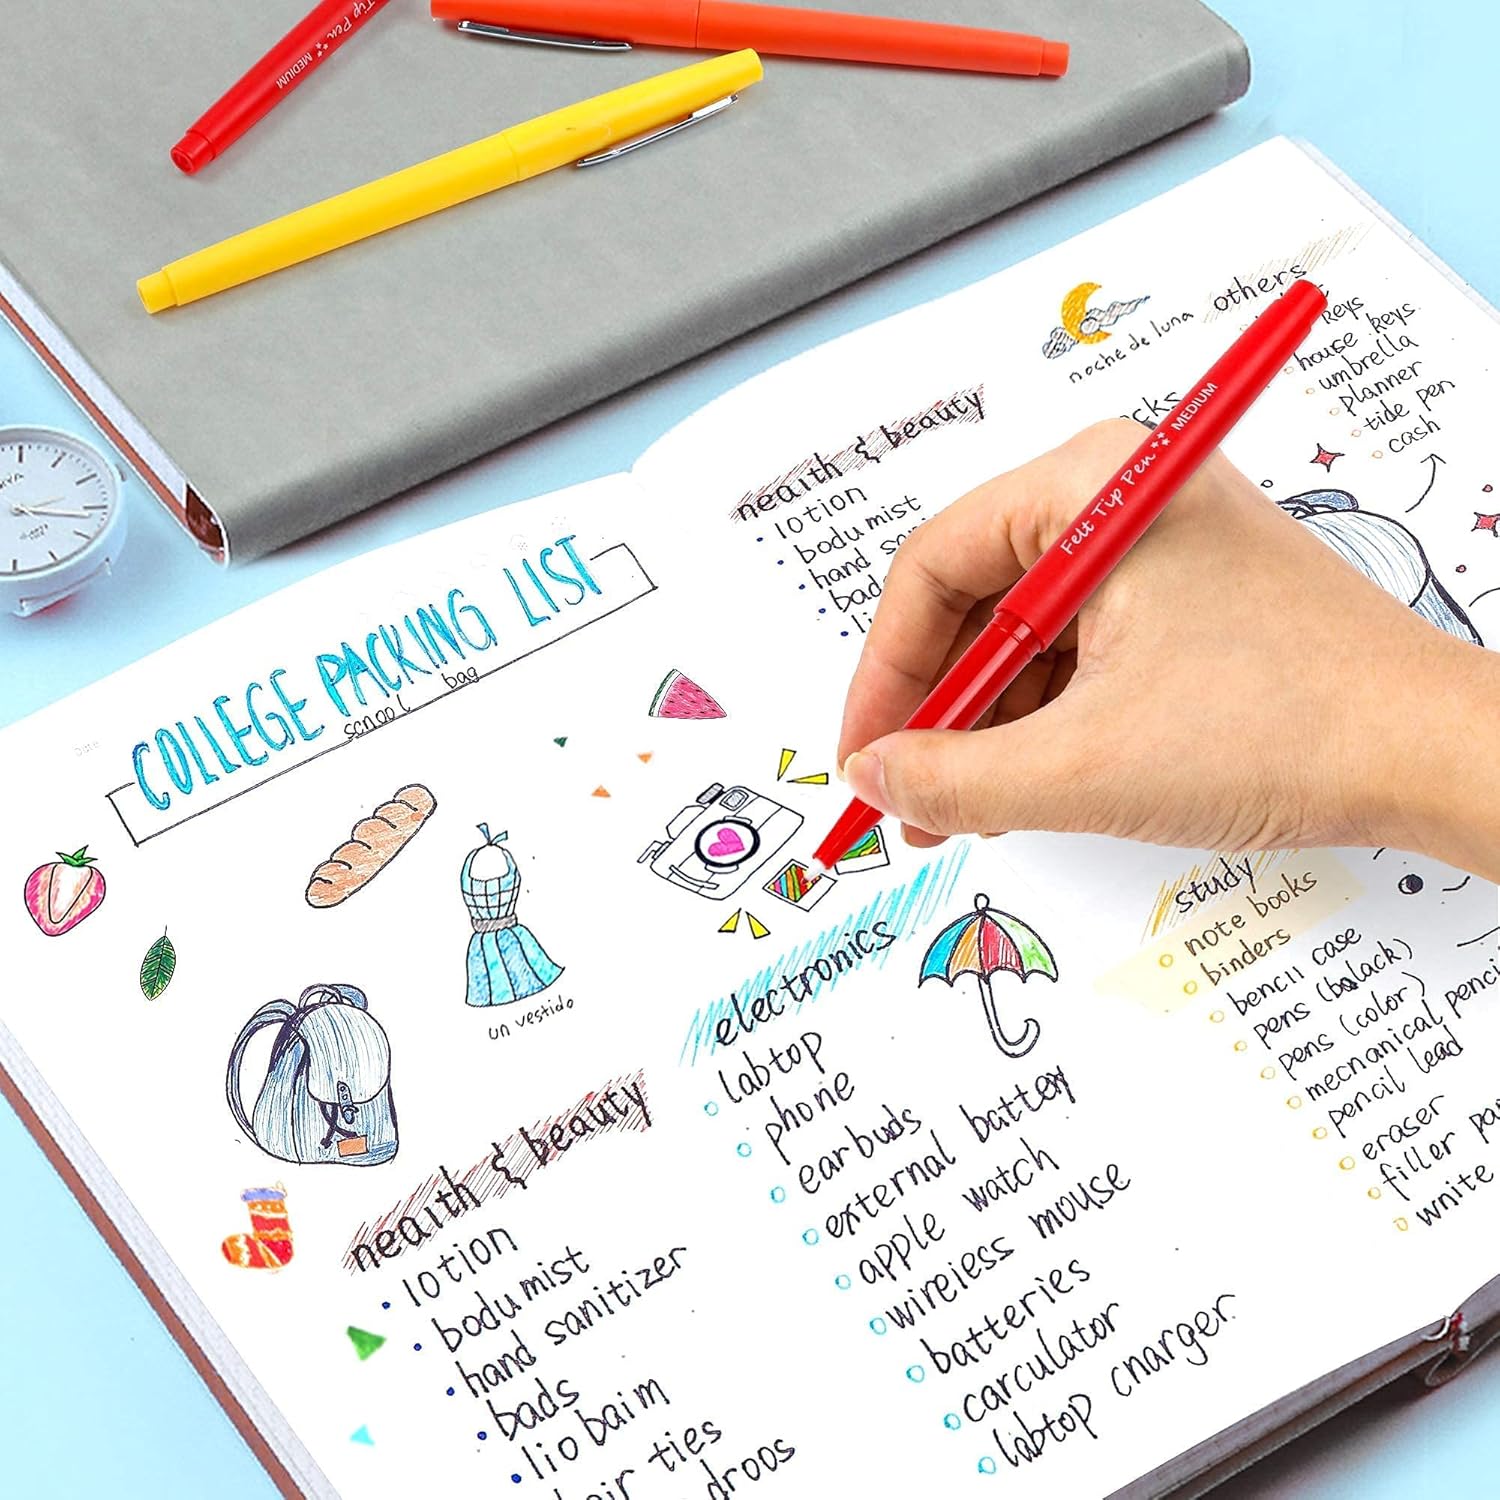 Tip Pen MEDIUM
COLLEGE PACKING LIST
scnool bag
Date
un vestido
neaith & beauty
lotion
bodu mist
hand sanitizer
bads
lio baim
hair ties
droos
electronics
labtop
phone
earbuds
external battery
apple watch
wireiess mouse
batteries
carculator
labtop cnarger.
neaith & beauty
lotion
bodu mist
hand
bads
noche de luna
others
keys
house keys
umbrella
planner
tide pen
cash
Felt Tip Pen MEDIUM
study
note books
binders
bencil case
pens (balack)
pens (color)
mecnanical pencil
pencil lead
eraser
filler
wnite